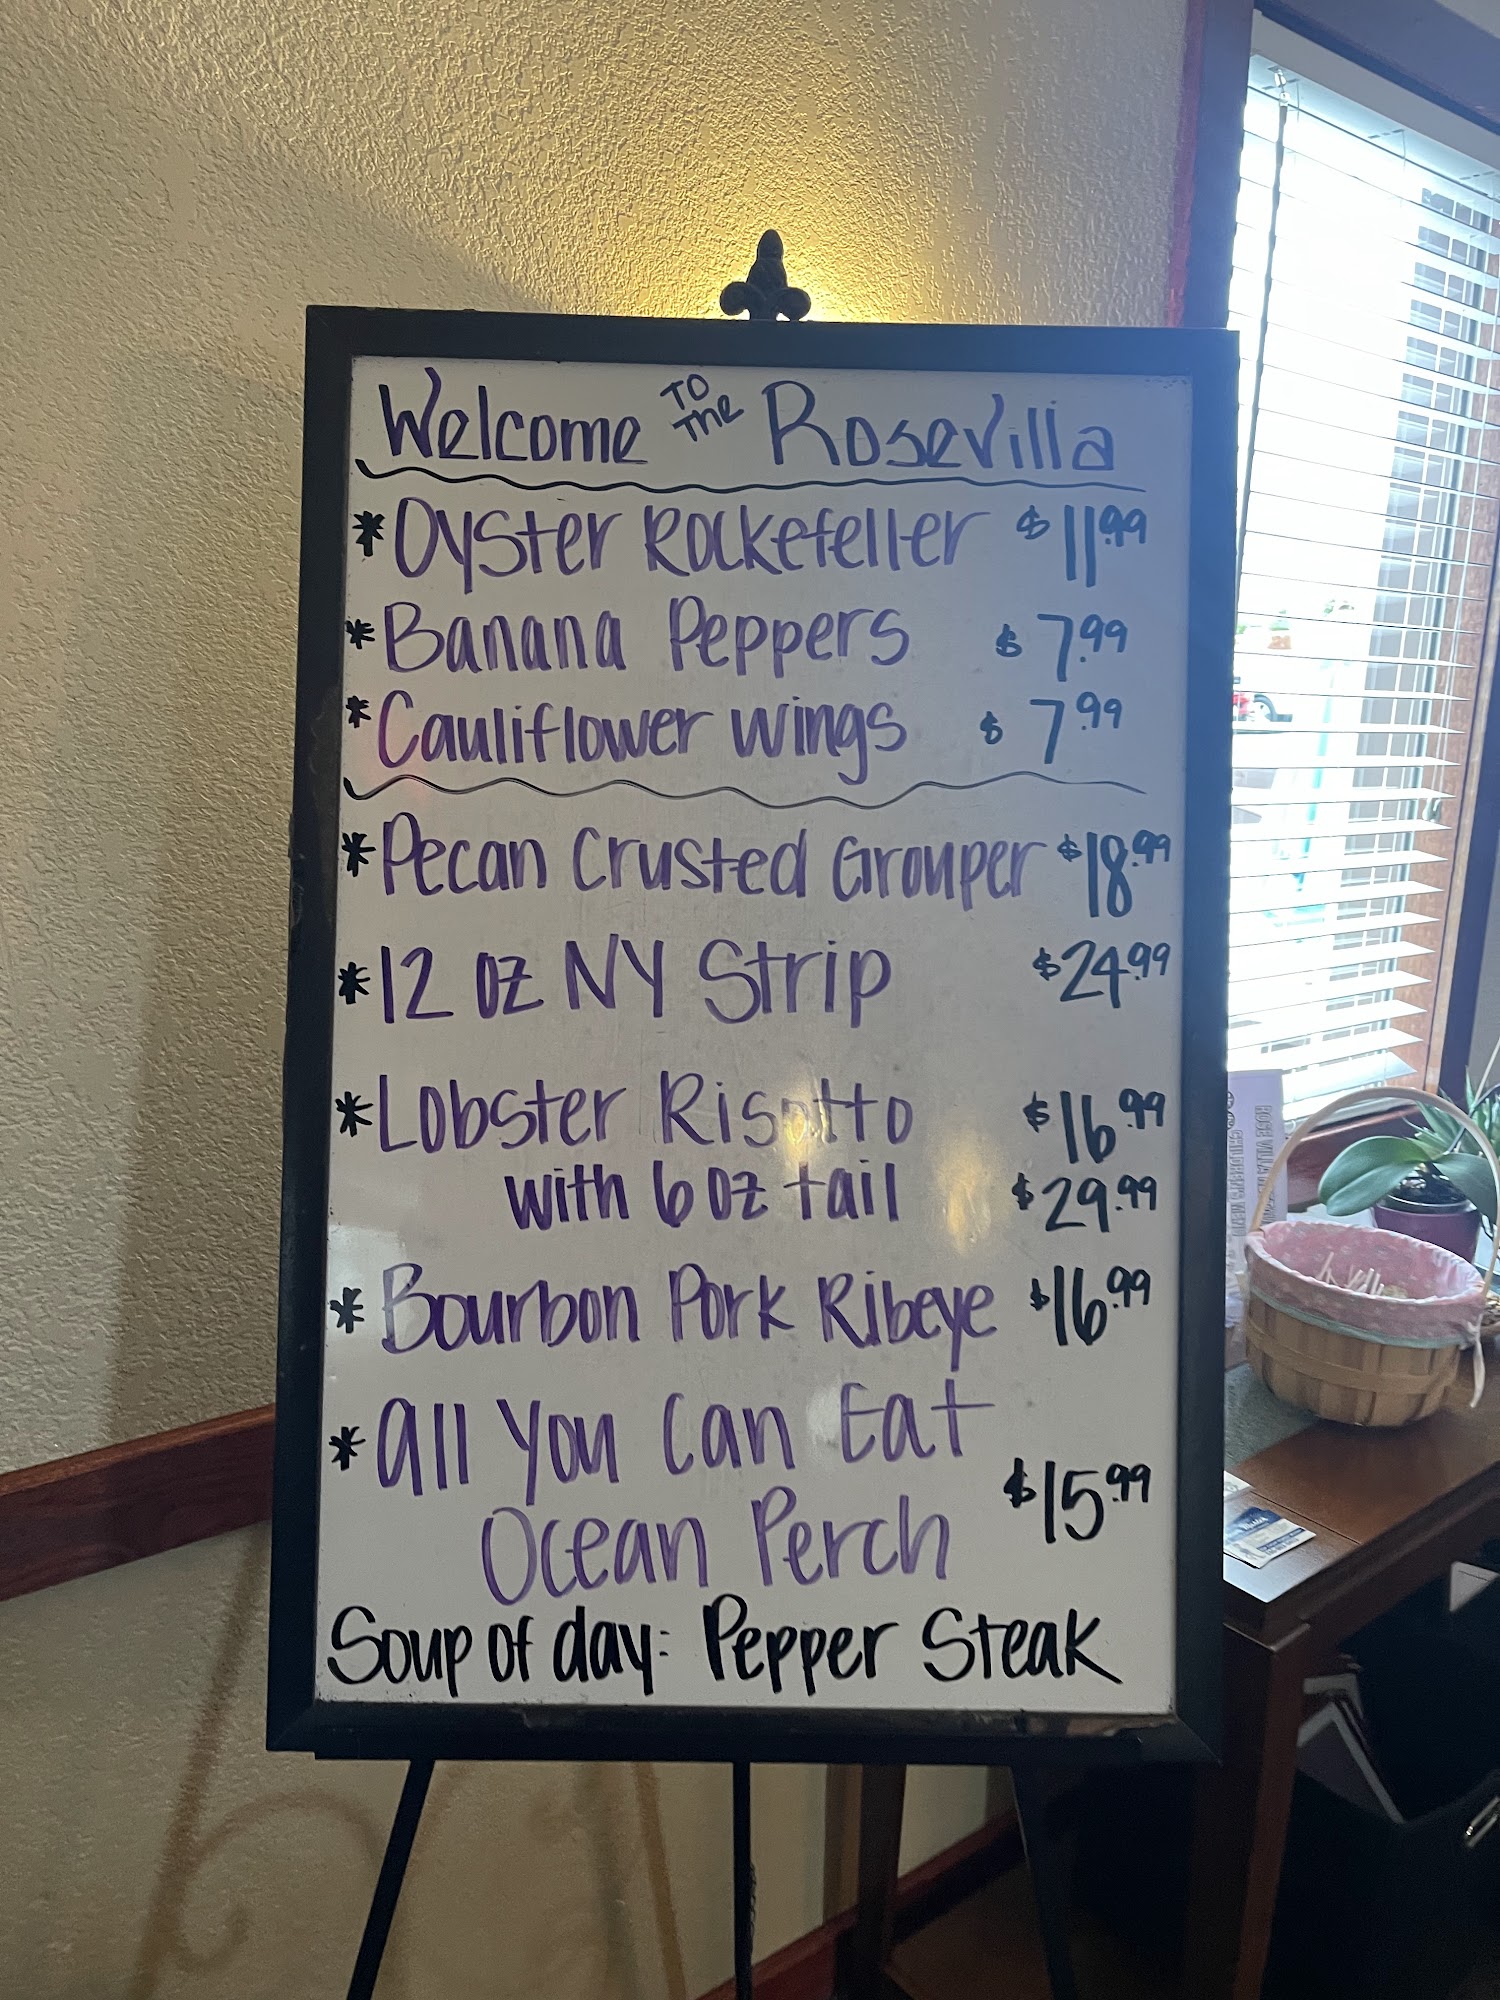 Welcome TO The Rosevilla
* Oyster Rockefeller $11.99
* Banana Peppers $7.99
* Cauliflower Wings $7.99
* Pecan Crusted Grouper $18.99
* 12 oz NY Strip $24.99
* Lobster Risotto $16.99
with 6 oz tail $29.99
* Bourbon Pork Ribeye $16.99
* all You Can Eat
Ocean Perch $15.99
Soup of day: Pepper Steak
CHILDREN'S MENU